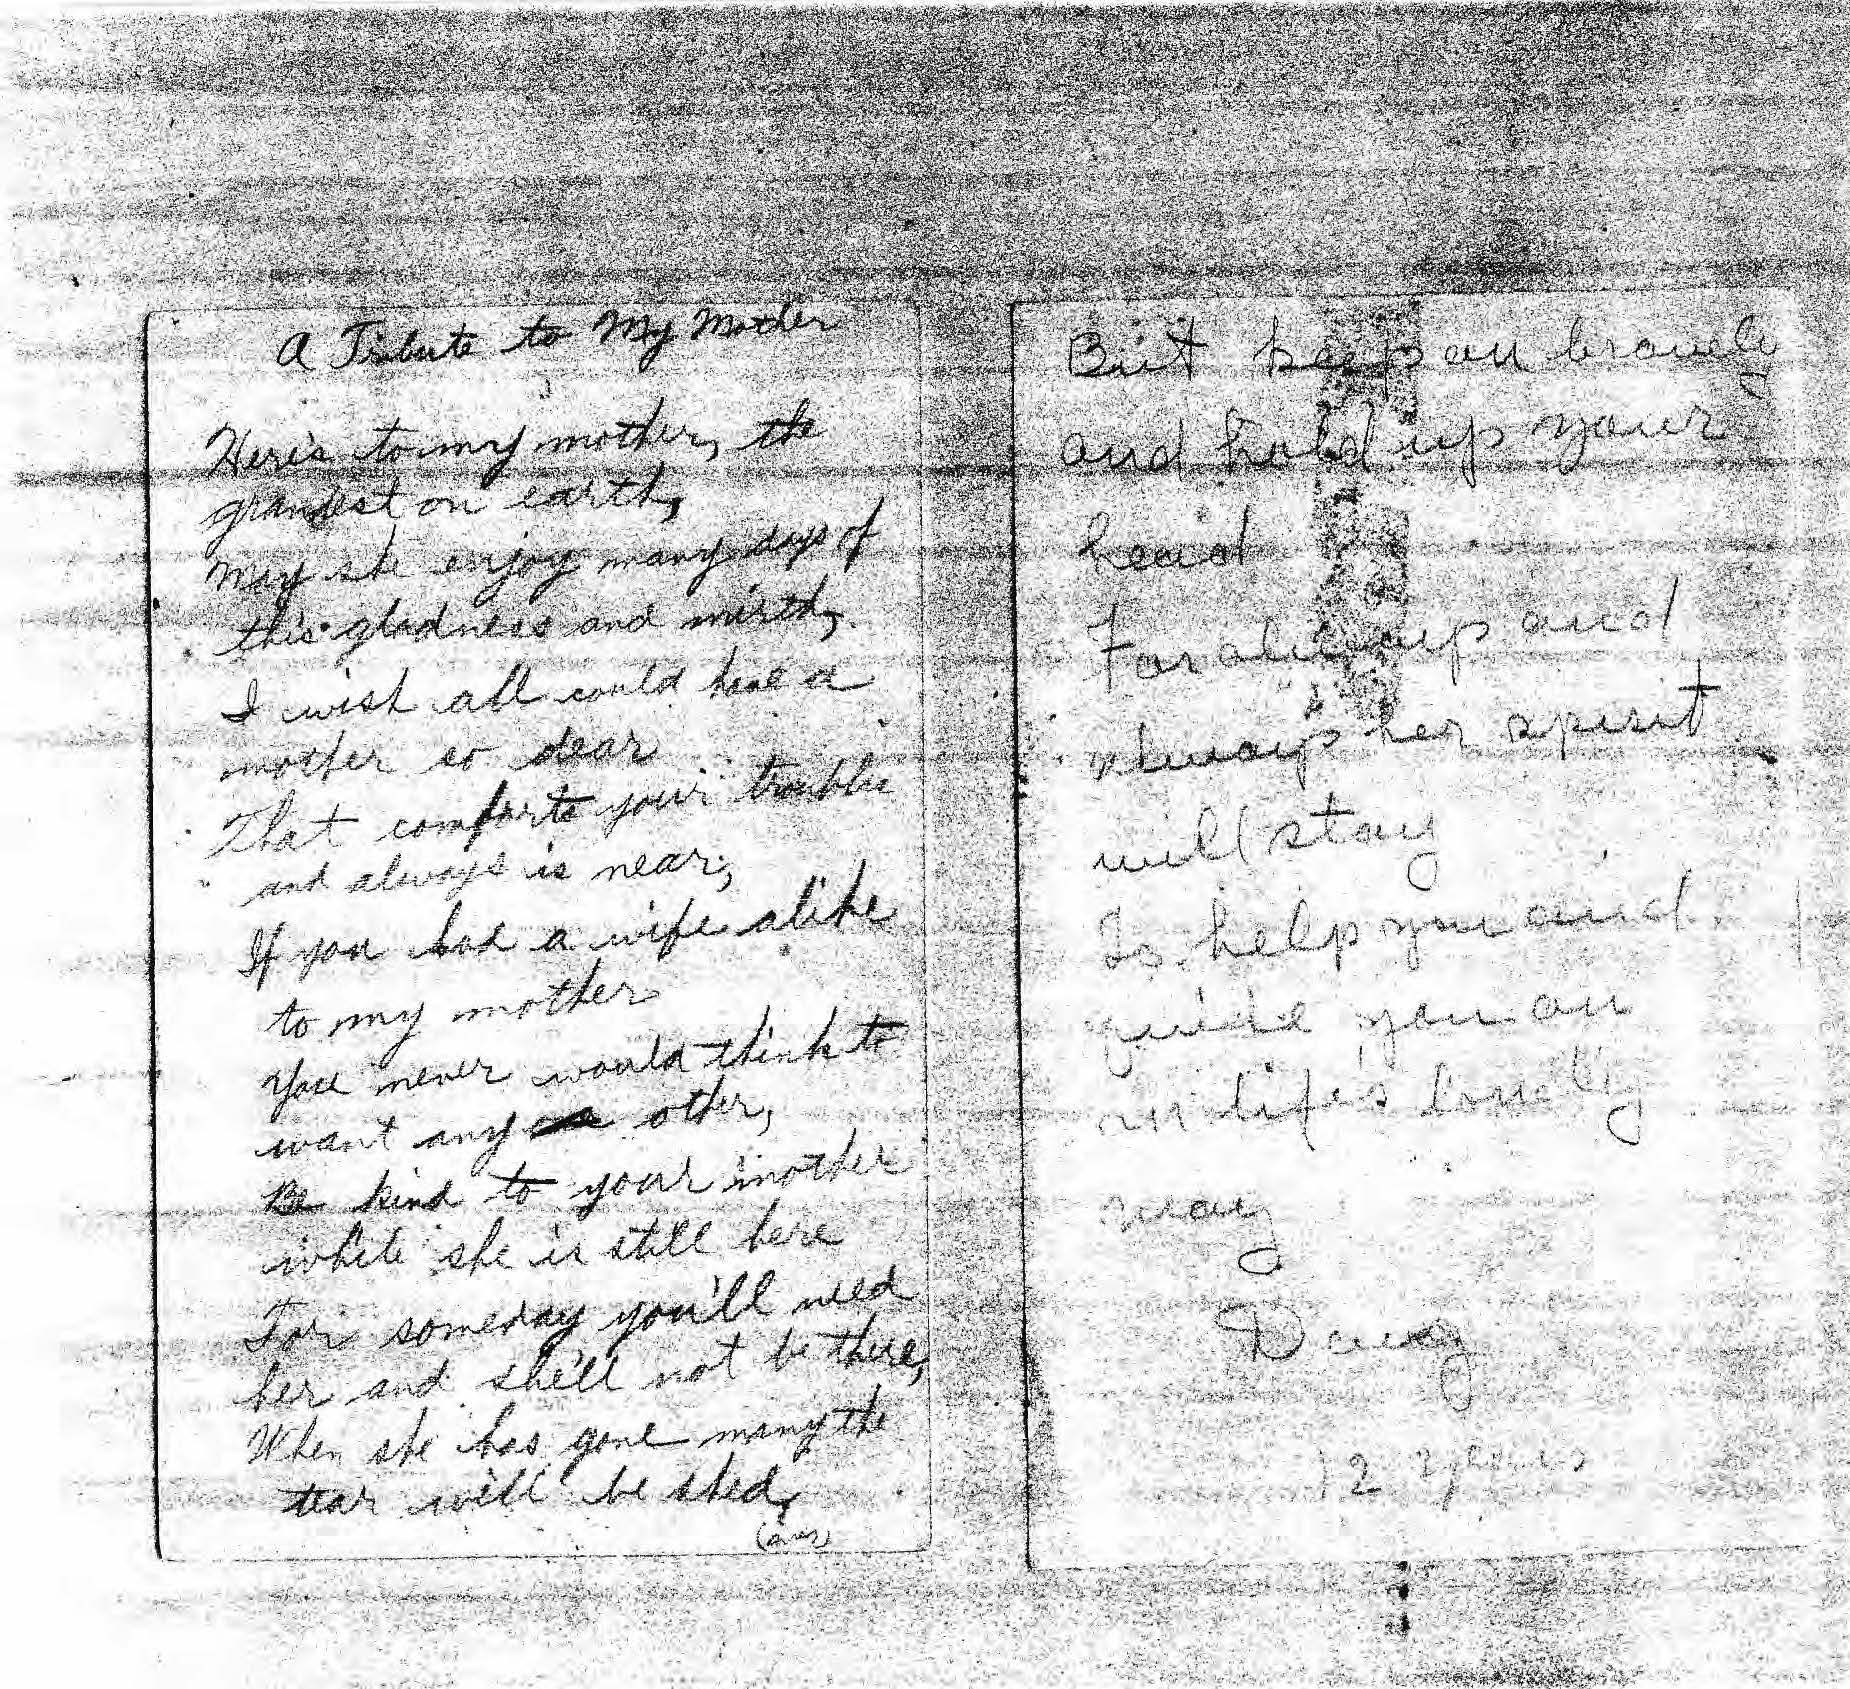 A Tribute to My Mother
Here's to my mother, the
grandest on earth,
May she enjoy many days of
this gladness and mirth,
I wish all could have a
mother so dear
That comforts your troubles
and always is near;
If you had a wife alike
to my mother
You never would think to
want any other,
Be kind to your mother
while she is still here
For someday you'll need
her and she'll not be there,
When she has gone many the
tear will be shed,
(over)
But keep on bravely
and hold up your
head
For always and
always her spirit
will stay
To help you and
guide you on
on life's lonely
way
Doug
12 years